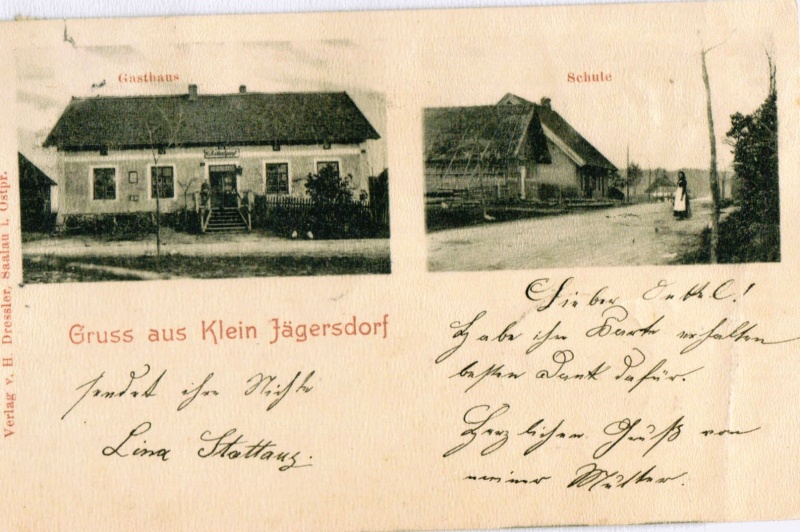 Gasthaus
Schule
Verlag v. H. Dressler, Saalau i. Ostpr.
Gruss aus Klein Jägersdorf
Lieber Onkel!
Habe ihre Karte erhalten
besten Dank dafür.
Herzlichen Gruß von
meiner Mutter.
sendet ihre Nichte
Lina